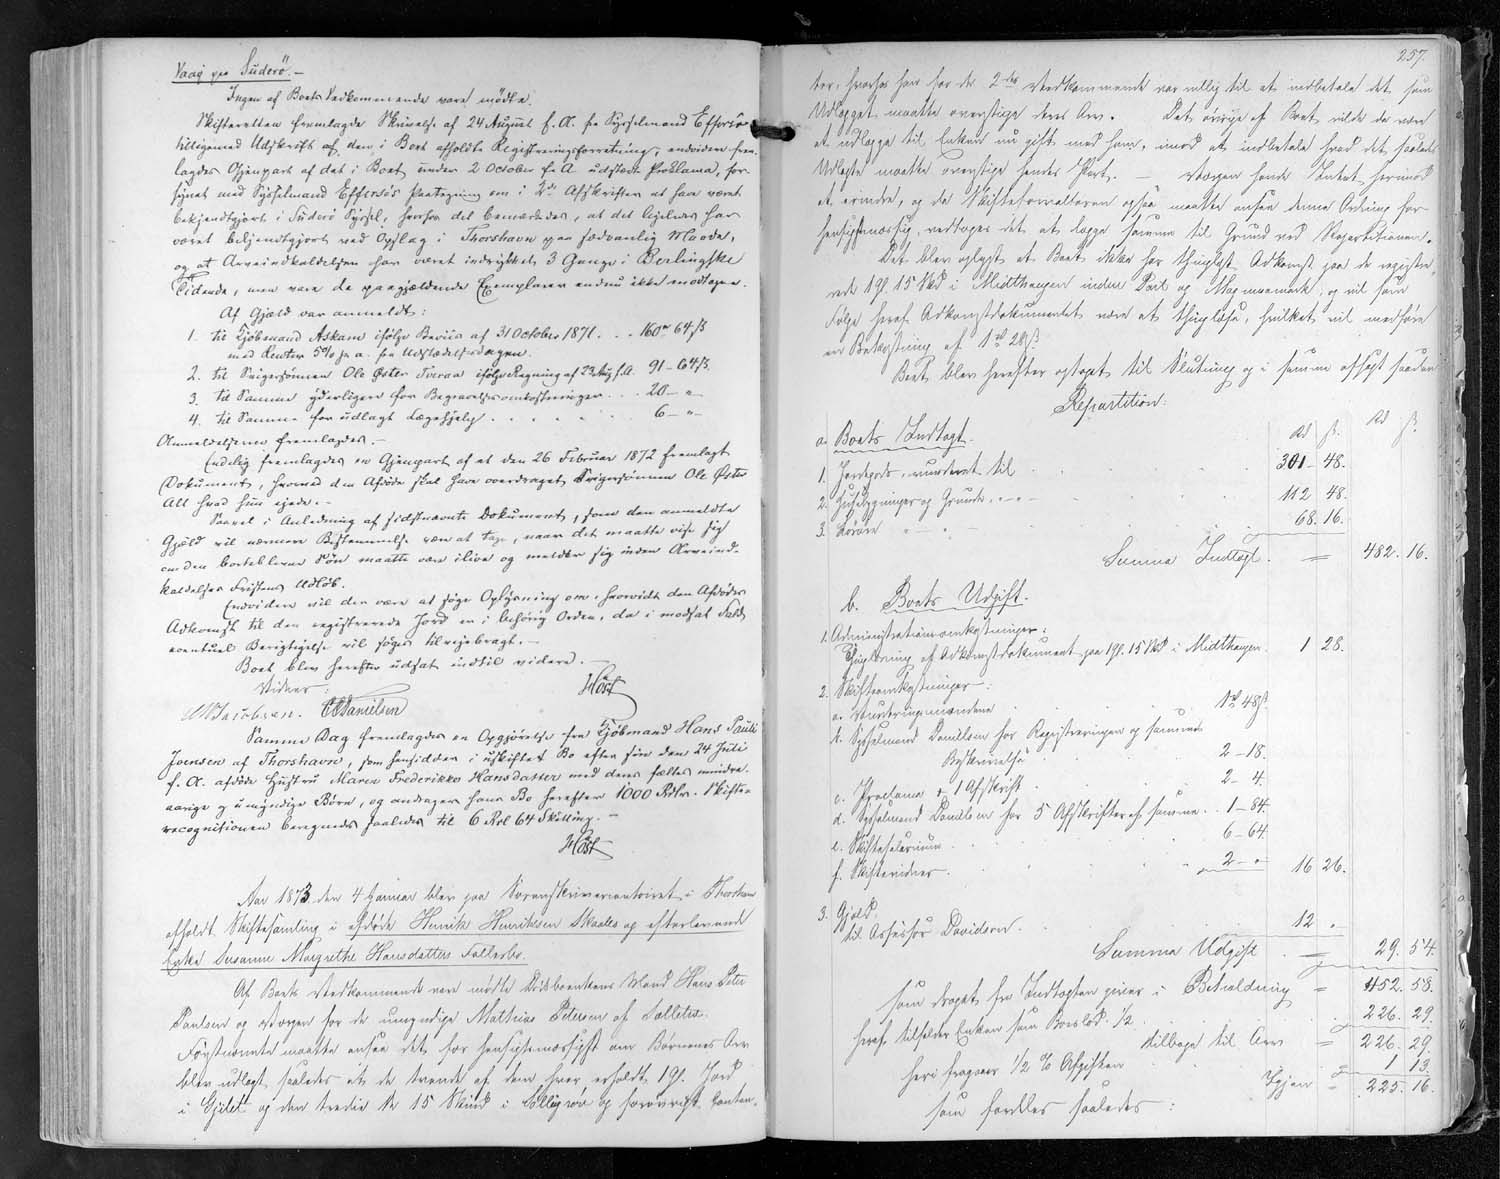 Vaag paa Suderö. –
Ingen af Boets Vedkommende vare mødte.
Skifteretten fremlagde Skrivelse af 24 August f. A. fra Sysselmand Effersöe
tilligemed Udskrift af den i Boet afholdte Registreringsforretning, endvidere frem-
lagdes Gjenpart af det i Boet under 2 October f. A. udstedte Proklama, for-
synet med Sysselmand Effersöes Paategning om i Afskrifter at have været
bekjendtgjort i Suderö Syssel, hvorhos det bemærkedes, at det ligeledes har
været bekjendtgjort ved Opslag i Thorshavn paa sædvanlig Maade,
og at Arveindkaldelsen har været indrykket 3 Gange i Berlingske
Tidende, men vare de paagjældende Exemplarer endnu ikke modtagne.
Af Gjæld var anmeldt:
1. til Kjöbmand Askam ifölge Beviis af 31 October 1871. . . 160 rd 64 ß
med Renter 5% p. a. fra Udstædelsesdagen.
2. til Svigersönnen Ole Öster Tveraa ifölge Regning af 23 Aug f. A. 91 – 64 ß.
3. til Samme yderligere for Begravelsesomkostninger . . . 20 – "
4. til Samme for udlagt Lægehjelp . . . . 6 – "
Anmeldelserne fremlagdes. –
Endelig fremlagdes en Gjenpart af et den 26 Februar 1872 fremlagt
Dokument, hvorved den Afdøde skal have overdraget Svigersönnen Ole Öster
Alt hvad hun ejede. –
Saavel i Anledning af sidstnævnte Dokument, som den anmeldte
Gjæld vil nærmere Bestemmelse være at tage, naar det maatte vise sig
om den borteblevne Sön maatte være ilive og melder sig inden Arveind-
kaldelses Fristens Udløb.
Endvidere vil der være at søge Oplysning om, hvorvidt den Afdødes
Adkomst til den registrerede Jord er i behörig Orden, da i modsat Fald
eventuel Berigtigelse vil søges tilvejebragt. –
Boet blev herefter udsat indtil videre. –
Vidner: Höst
Jacobsen. Danielsen
Samme Dag fremlagdes en Opgjörelse fra Kjöbmand Hans Pauli
Joensen af Thorshavn, som hensidder i uskiftet Bo efter sin den 24 Juli
f. A. afdøde Hustru Maren Frederikke Hansdatter med deres fælles mindre-
aarige og umyndige Börn, og andrager hans Bo herefter 1000 Rdlr. Skifte-
recognitionen beregnedes saaledes til 6 Rd 64 Skilling. –
Höst
Aar 1873 den 4 Januar blev paa Sorenskrivercontoiret i Thorshavn
afholdt Skiftesamling i afdøde Henrik Henriksen Skaales og efterlevende
Enke Susanne Margrethe Hansdatters Fællesbo.
Af Boets Vedkommende vare mødte Enkens Mand Hans Peter
Poulsen og Værgen for de umyndige Mathias Petersen af
Førstnævnte maatte ansee det for hensigtsmæssigst om Børnenes Arv
blev udlagt saaledes at de tvende af dem hver erholdt 1 Gl. Jord
i og den tredie de 15 Skind i og forøvrigt Contan-
257.
ter, hvorhos han for de 2de Vedkommende var villig til at indbetale det som
Udlægget maatte overstige deres Arv. Det övrige af Boet vilde da være
at udlægge til Enken nu gift med ham, imod at indbetale hvad det saaledes
Udlagte maatte overstige hendes Part. – Værgen havde Intet herimod
at erindre, og da Skifteforvalteren ogsaa maatte ansee denne Ordning for
hensigtsmæssig, vedtoges det at lægge samme til Grund ved Repartitionen.
Det blev oplyst at Boet ikke har thinglyst Adkomst paa de registre-
rede 1 Gl. 15 Skd i Midthaugen inden og , og vil som
Følge heraf Adkomstdocumentet være at thinglæse, hvilket vil medføre
en Bekostning af 1 rd 28 ß
Boet blev herefter optaget til Slutning og i samme afsagt saadan
Repartition:
Rd ß. Rd ß.
a. Boets Indtægt.
1. Jordegods, vurderet til . . . 301 – 48.
2. Husebygninger og Grunde – " – . . . 112 48.
3. Løsøre – " – . . . 68. 16.
Summa Indtægt. = 482. 16.
b. Boets Udgift.
1. Administrationsomkostninger:
Thinglæsning af Adkomstdocument paa 1 Gl. 15 Skd i Midthaugen. 1 28.
2. Skifteomkostninger:
a. Vurderingsmændene . . . 1 rd 48 ß.
b. Sysselmand Danielsen for Registreringen og sammes
Beskrivelse . . . 2 – 18.
c. Proclama + 1 Afskrift . . . 2 – 4.
d. Sysselmand Danielsen for 5 Afskrifter af samme . . 1 – 84.
e. Skiftesalarium . . . 6 – 64.
f. Skiftevidner . . . 2 – " 16 26.
3. Gjæld.
til Assessor Davidsen. . . . 12 "
Summa Udgift . = 29. 54.
som draget fra Indtægten giver i Beholdning = 452. 58.
heraf tilfalder Enken som Boeslod 1/2 . . . 226. 29.
tilbage til Arv = 226. 29.
heri fragaaer 1/2 % Afgiften . . . 1 13.
Igjen = 225. 16.
som fordeles saaledes: